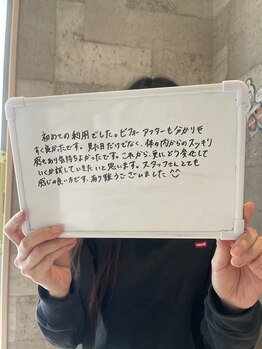 初めての利用でした。ビフォーアフターも分かりや
すく良かったです。見た目だけでなく、体の内からのスッキリ
感もあり気持ちよかったです。これから、更にどう変化して
いくか試していきたいと思います。スタッフさんとても
感じの良い方です、有り難うございました ^^